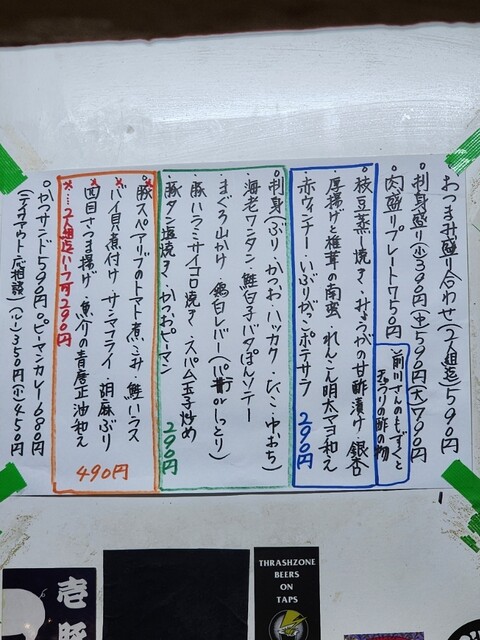 おつまみ盛り合わせ(2人組迄)590円
○刺身盛り(小)390円(中)590円(大)790円
○肉盛りプレート750円
前川さんのもずくと
天ぷらの酢の物
・枝豆蒸し焼き・みょうがの甘酢漬け 銀杏
・厚揚げと椎茸の南蛮・れんこん明太マヨ和え
・赤ウインナー・いぶりがっこポテサラ 290円
・刺身(ぶり・かつお・ハッカク・びこ・ゆおち)
・海老ワンタン 鮭白子バタぽんソテー
・まぐろ山かけ・鶏白レバー(パ粉orしっとり)
・豚ハラミサイコロ焼き・スパム玉子炒め
・豚タン塩焼き・かつおピーマン 290円
・豚スペアリブのトマト煮こみ・鮭ハラス
・バイ貝煮付け・サンマフライ 胡麻ぶり
・四目さつま揚げ・魚介の青唐正油和え
※…2人組迄ハーフ可290円 490円
○かつサンド590円○ピーマンカレー680円
(テイクアウト応相談)(小)350円(小)450円
THRASHZONE
BEERS
ON
TAPS
壱
豚